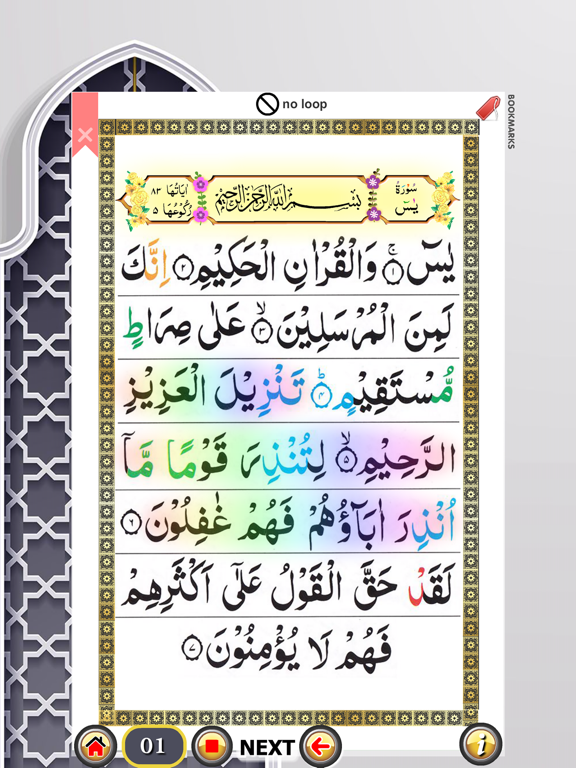 no loop
BOOKMARKS
سُوْرَةُ يٰسٓ
بِسْمِ اللّٰهِ الرَّحْمٰنِ الرَّحِيْمِ
اٰيَاتُهَا ٨٣
رُكُوْعُهَا ٥
يٰسٓ ۚ ﴿١﴾ وَالْقُرْاٰنِ الْحَكِيْمِ ﴿٢﴾ اِنَّكَ
لَمِنَ الْمُرْسَلِيْنَ ۙ ﴿٣﴾ عَلٰى صِرَاطٍ
مُّسْتَقِيْمٍ ؕ ﴿٤﴾ تَنْزِيْلَ الْعَزِيْزِ
الرَّحِيْمِ ۙ ﴿٥﴾ لِتُنْذِرَ قَوْمًا مَّاۤ
اُنْذِرَ اٰبَآؤُهُمْ فَهُمْ غٰفِلُوْنَ ﴿٦﴾
لَقَدْ حَقَّ الْقَوْلُ عَلٰٓى اَكْثَرِهِمْ
فَهُمْ لَا يُؤْمِنُوْنَ ﴿٧﴾
01
NEXT
i